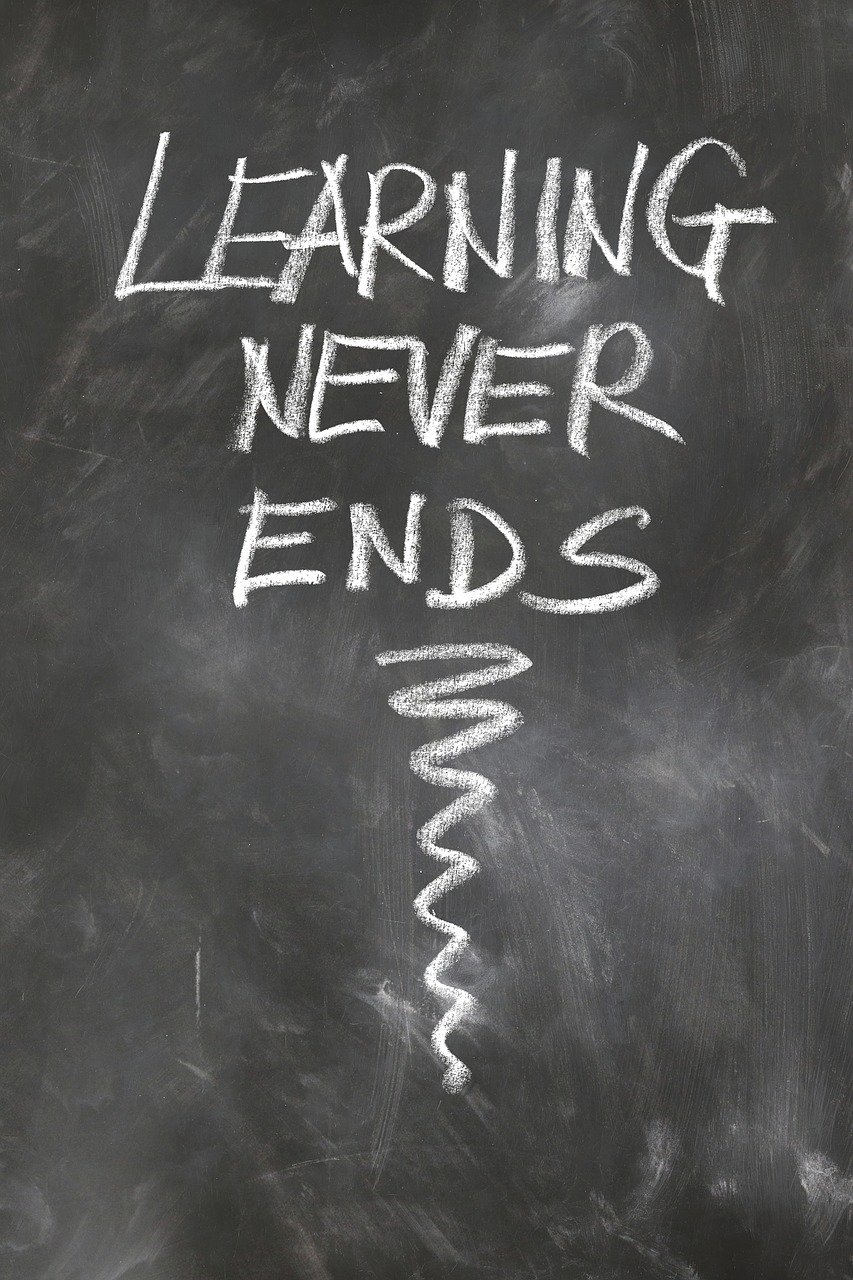 LEARNING
NEVER
ENDS